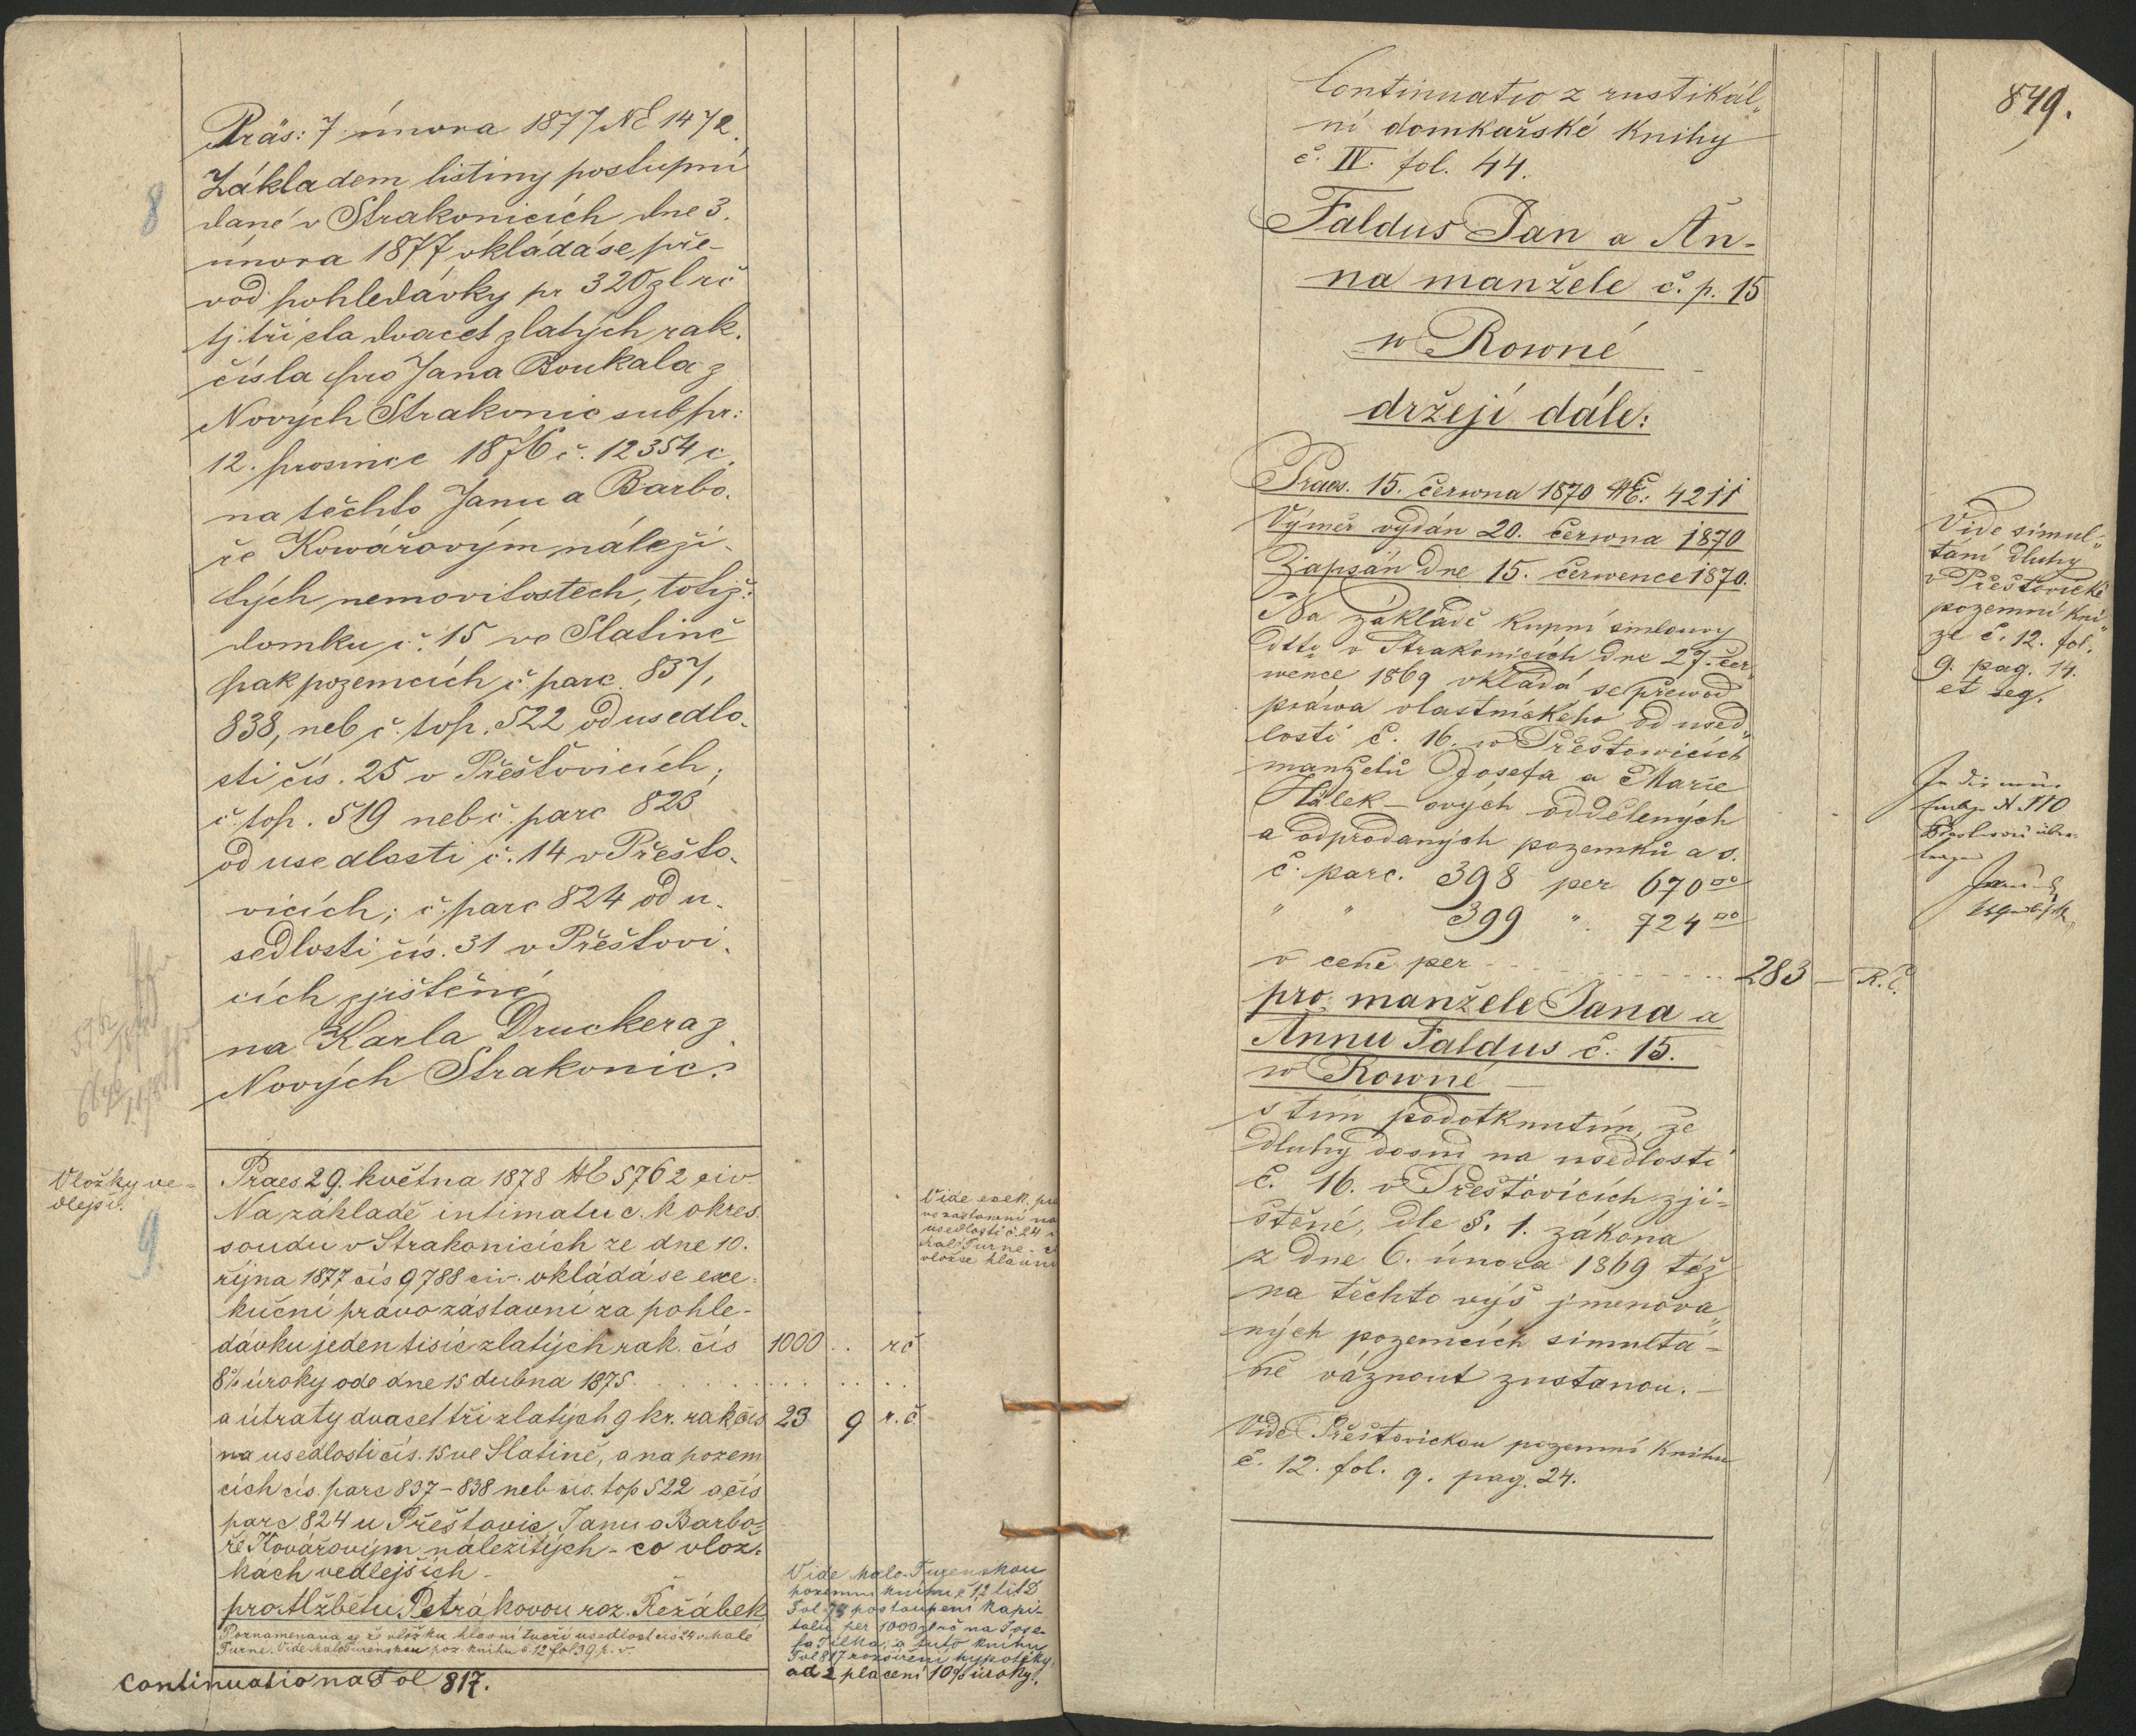 Präs: 7 února 1877 NE 1472.
Základem listiny postupní
dané v Strakonicích dne 3.
února 1877 vkládá se pře-
vod pohledávky pr 320 zl rč
tj. tři sta dvacet zlatých rak.
čísla pro Jana Boukala z
Nových Strakonic sub pr:
12. prosince 1876 č. 12354 c.
na těchto Janu a Barbo-
ře Kowářovým náleži-
tých nemovitostech, totiž:
domku č. 15 ve Slatině
pak pozemcích č. parc. 837,
838, neb č. top. 522 od usedlo-
sti čís. 25 v Přešťovicích;
č. top. 519 neb č. parc 823
od usedlosti č. 14 v Přešťo-
vicích; č. parc 824 od u-
sedlosti čís. 31 v Přešťovi-
cích zjištěné
na Karla Druckera z
Nových Strakonic.
8
Vložky ve-
dlejší.
9
Praes 29. května 1878 NE 5762 civ
Na základě intimatu c. k okres.
soudu v Strakonicích ze dne 10.
října 1877 čís 9788 civ. vkládá se exe-
kuční právo zástavní za pohle-
dávku jeden tisíc zlatých rak. čís 1000 . . rč
8% úroky ode dne 15 dubna 1875 . . . . .
a útraty dvacet tři zlatých 9 kr. rak čís 23 9 r. č.
na usedlosti čís. 15 ve Slatině, a na pozem
cích čís. parc 837-838 neb čís. top 522 a čís
parc 824 u Přešťovic Janu a Barbo-
ře Kovářovým náležitých - co vlož-
kách vedlejších -
pro Alžbětu Petrákovou roz. Řežábek
Poznamenává se že vložku hlavní tvoří usedlost čís 24 v Malé
Turné. Vide Malo Turenskou poz. knihu č 12 fol 39 p. v.
Continuatio na Fol 817.
Vide exek. prá
vo zástavní na
usedlosti č. 24 v
Malé Turné - 
vložce hlavní
Vide Malo-Turenskou
pozemní knihu č 12 lit D
Fol 73 postoupení kapi-
tálu per 1000 zl rč na Jose-
fa Tilka; a tuto knihu
Fol 817 rozšíření hypotéky,
ad 2 placení 10% úroky.
849.
Continuatio z rustikál„
ní domkařské knihy
č. IV. fol. 44.
Faldus Jan a An-
na manžele č. p. 15
w Rowné
držejí dále:
Praes. 15. června 1870 NE: 4211
Výměr vydán 20. června 1870
Zapsán dne 15. července 1870.
Na základě kupní smlouvy
dtto v Strakonicích dne 27. čer„
wence 1869 vkládá se převod
práwa vlastnického od used„
losti č. 16. w Přešťowicích
manželů Josefa a Marie
Hálek-ových oddělených
a odprodaných pozemků a s.
č. parc. 398 per 670□°
" " 399 " 724□°
v ceně per . . . . . . . . . 283 — R. č.
pro manžele Jana a
Annu Faldus č. 15.
w Rowné —
s tím podotknutím, že
dluhy dosud na usedlosti
č. 16. v Přešťovicích zji-
štěné, dle §. 1. zákona
z dne 6. února 1869 též
na těchto výš jmenova„
ných pozemcích simultá-
ně váznout zůstanou. —
Vide Přešťovickou pozemní knihu
č. 12. fol. 9. pag. 24.
Vide simul„
tání dluhy
v Přešťovické
pozemní kni„
ze č. 12. fol.
9. pag. 14.
et seq.